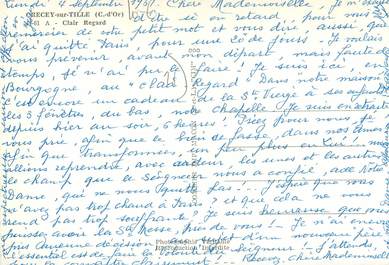 Lundi 4 septembre 1961. Cher Mademoiselle, Je m'excuse
CRECEY-sur-TILLE (C.-d'Or)
61 A - Clair Regard
être si en retard, pour vous
de votre petit mot et vous dire aussi que
j'ai quitté Paris, pour une 15e de jours. Je voulais
vous prévenir avant mon départ mais faute de
temps, je n'ai pu faire! Je suis ici, en
Bourgogne, au "Clair Regard". Dans notre maison
c'est encore un cadeau de la Ste Vierge à ses enfants
les 3 fenêtres du bas, notre chapelle. Je suis en retraite
depuis hier au soir, 6 heures! Priez pour nous je
vous prie, afin que le bien se fasse, dans nos âmes
afin que transformés, un peu plus en Lui, nous
allions reprendre, avec ardeur, les unes et les autres
le champ que le Seigneur nous a confié, avec Notre
Dame, qui ne nous quitte pas... J'espère que vous
n'avez pas trop chaud à Paris? et que cela ne vous
rend pas trop souffrante? Je suis heureuse que vous
puissiez avoir la Ste Messe, près de vous! Je n'ai
pris aucune décision au sujet d'un nouveau père
l'essentiel est de faire la volonté du Seigneur. J'attends,
Photographie Véritable
Reproduction Interdite
Recevez, chère Mademoiselle,